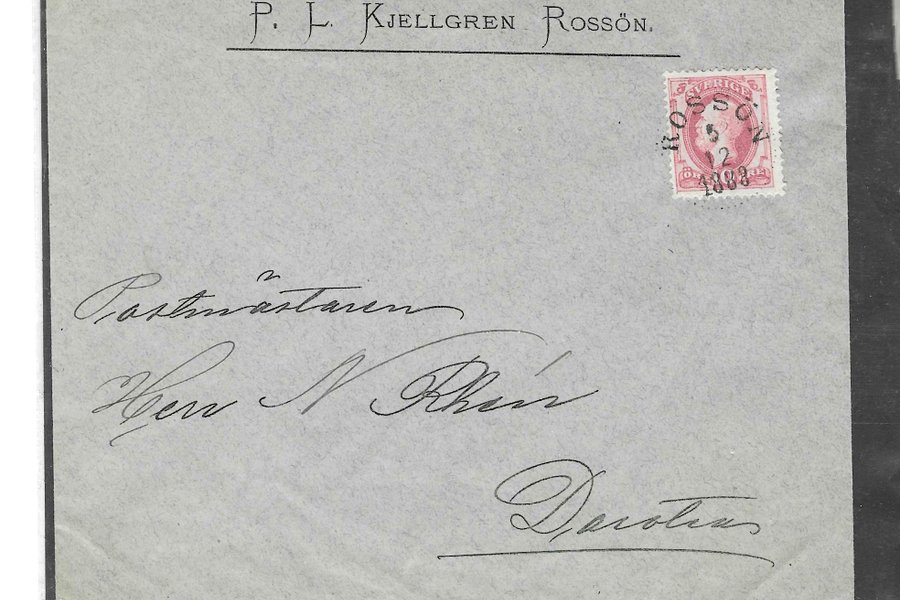 P. L. KJELLGREN ROSSÖN.
SVERIGE
ROSSÖN
5
12
1888
Postmästaren
Herr N Rhén
Dorotea